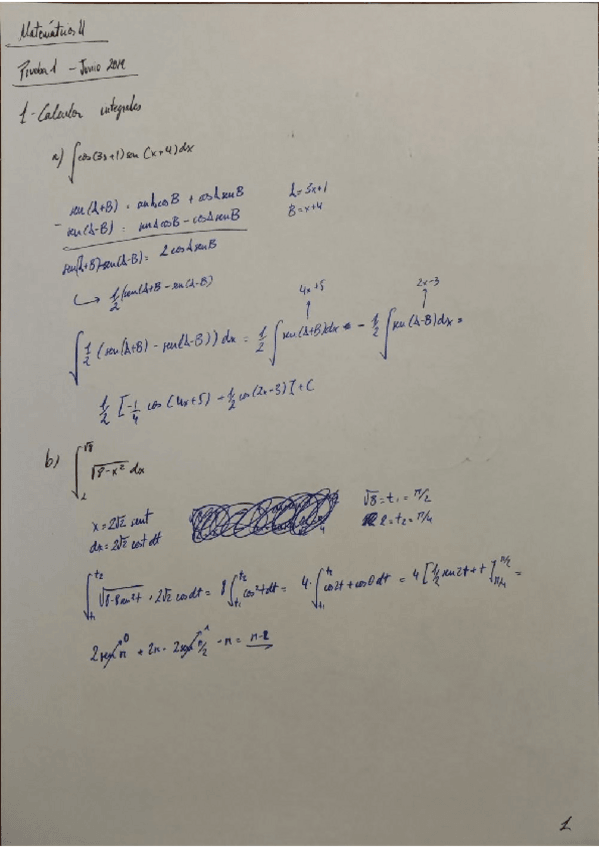 Matemáticas II
Prueba 1 - Junio 2019
1- Calcular integrales
a) ∫cos(3x+1)sen(x+4)dx
sen(A+B) = senAcosB + cosAsenB
A=3x+1
- sen(A-B) = senAcosB - cosAsenB
B=x+4
sen(A+B)-sen(A-B) = 2cosAsenB
↳ 1/2(sen(A+B - sen(A-B)
4x+5
2x-3
∫1/2(sen(A+B) - sen(A-B))dx = 1/2∫sen(A+B)dx - 1/2∫sen(A-B)dx =
1/2[-1/4 cos(4x+5) + 1/2 cos(2x-3)]+C
b) ∫₂^√8 √(8-x²) dx
x=2√2 sent
√8=t₁=π/2
dx=2√2 cost dt
2=t₂=π/4
∫t₁^t₂ √(8-8sen²t) · 2√2 cosdt = 8∫t₁^t₂ cos²tdt = 4·∫t₁^t₂ cos2t+cos0dt = 4[1/2sen2t+t]π/4^π/2 =
2senπ + 2π - 2senπ/2 - π = π-2
1